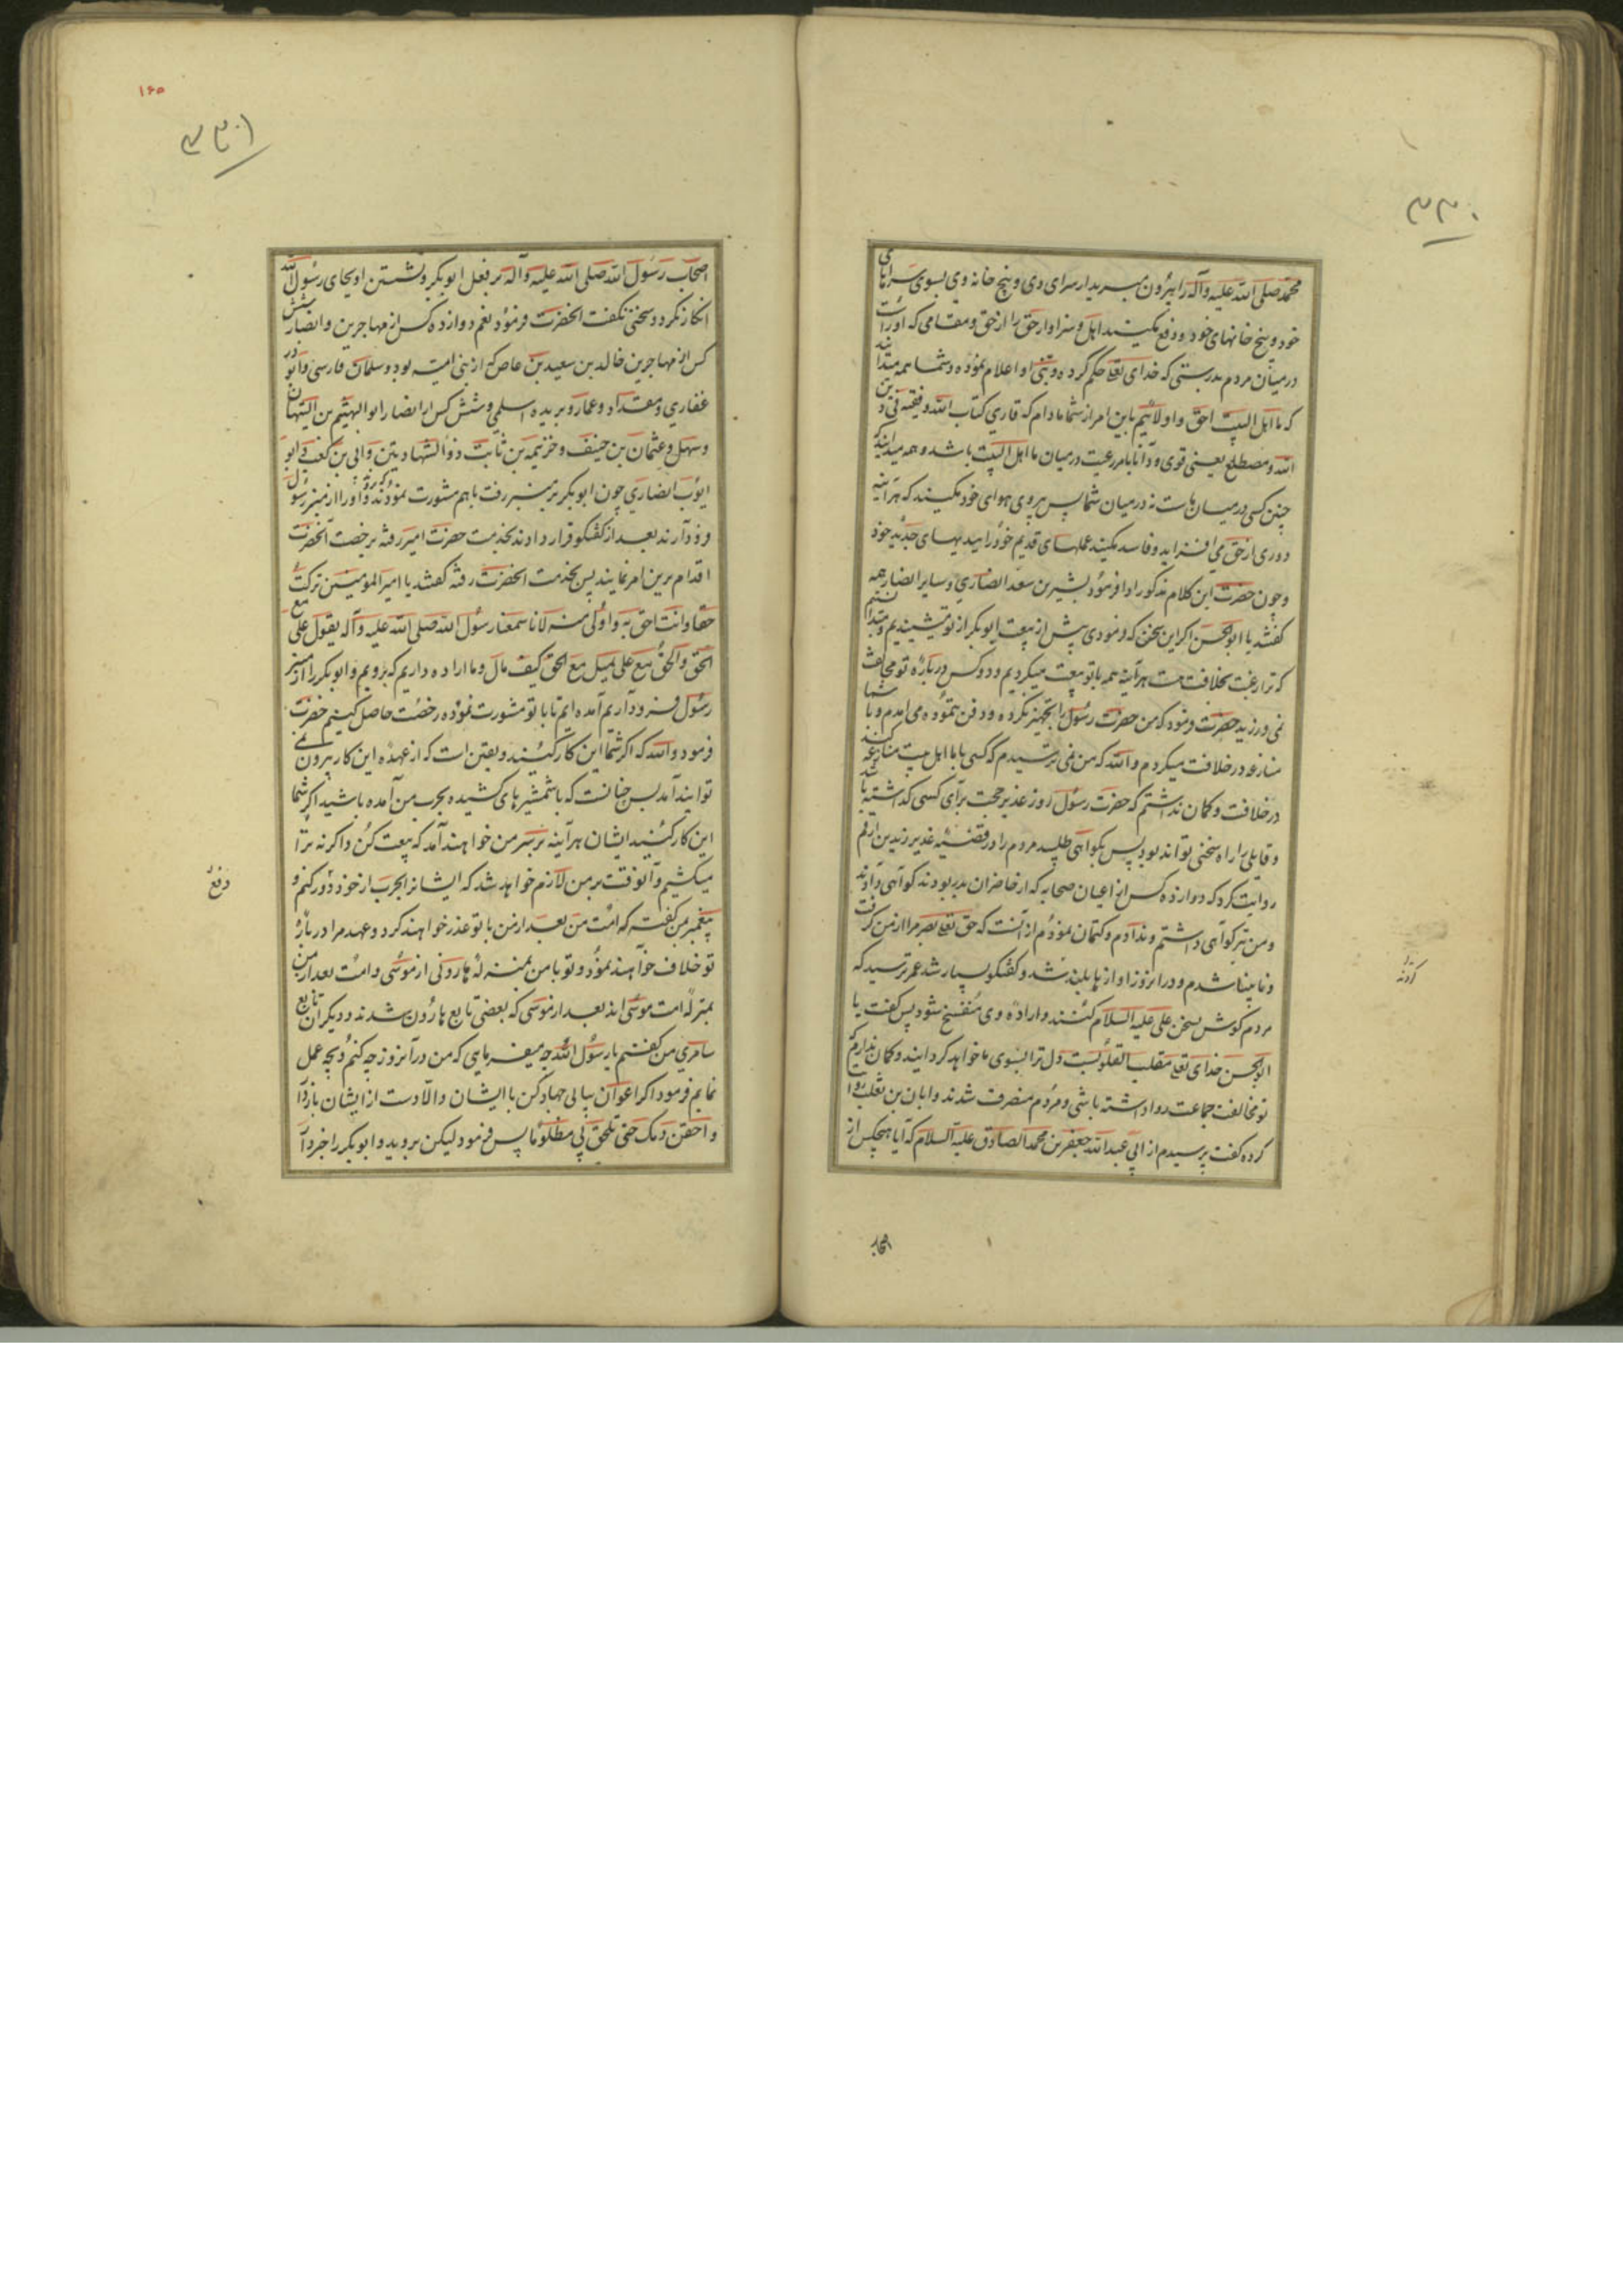 ۳۳۰
محمد صلی الله علیه وآله را بیرون مبرید از سرای وی و بیخ خانه وی بسوی سراهای
خود و بیخ خانهای خود و دفع مکنید اهل و سزاوار حق را از حق و مقامی که اوراست
در میان مردم بدرستی که خدای تعالی حکم کرده و نبی او اعلام نموده و شما همه میدانید
که ما اهل البیت احق و اولائیم باین امر از شما مادام که قاری کتاب الله و فقیه فی دین
الله و مضطلع یعنی قوی و دانا بامر رعیت در میان ما اهل البیت باشد و همه میدانید که
چنین کسی در میان ماست نه در میان شما پس پیروی هوای خود مکنید که هر آینه
دوری از حق می افزاید و فاسد مکنید عملهای قدیم خود را ببدیهای جدید خود
و چون حضرت این کلام مذکور ادا فرمود بشیر بن سعد انصاری و سایر انصار همه
گفتند یا ابوالحسن اگر این سخن که فرمودی پیش از بیعت ابوبکر از تو میشنیدیم و میدانستیم
که ترا رغبت بخلافت هست هر آینه همه با تو بیعت میکردیم و دو کس در باره تو مخالفت
نمی ورزید حضرت فرمود که من حضرت رسول را تجهیز نکرده و دفن ننموده می آمدم و با شما
منازعه در خلافت میکردم والله که من نمی ترسیدم که کسی با ما اهل بیت منازعه کند
در خلافت و گمان نداشتم که حضرت رسول روز غدیر حجت برای کسی گذاشته باشد
و قایلی را راه سخنی تواند بود پس بگواهی طلبید مردم را در قضیه غدیر زید بن ارقم
روایت کرد که دوازده کس از اعیان صحابه که از حاضران بدر بودند گواهی دادند
و من نیز گواهی داشتم و ندادم و کتمان نمودم از آنست که حق تعالی بصر مرا از من گرفت
و نابینا شدم و در آنروز آوازها بلند شد و گفتگو بسیار شد عمر ترسید که
مردم گوش بسخن علی علیه السلام کنند و اراده وی منفسخ شود پس گفت یا
ابوالحسن خدای تعالی مقلب القلوبست دل ترا بسوی ما خواهد گردانید و گمان ندارم که
تو مخالفت جماعت روا داشته باشی و مردم منصرف شدند و ابان بن تغلب روایت
کرده گفت پرسیدم از ابی عبدالله جعفر بن محمد الصادق علیه السلام که آیا هیچکس از
اصحاب
۱۶۵
اصحاب رسول الله صلی الله علیه وآله بر فعل ابوبکر و نشستن او بجای رسول الله
انکار نکرد و سخنی نگفت آنحضرت فرمود نعم دوازده کس از مهاجرین و انصار شش
کس از مهاجرین خالد بن سعید بن عاص که از بنی امیه بود و سلمان فارسی و ابوذر
غفاری و مقداد و عمار و بریده اسلمی و شش کس از انصار ابوالهیثم بن التیهان
و سهل و عثمان بن حنیف و خزیمه بن ثابت ذوالشهادتین و ابی بن کعب و ابو
ایوب انصاری چون ابوبکر بر منبر رفت با هم مشورت نمودند که بروند و او را از منبر رسول
فرود آرند بعد از گفتگو قرار دادند بخدمت حضرت امیر رفته برخصت آنحضرت
اقدام برین امر نمایند پس بخدمت آنحضرت رفته گفتند یا امیرالمومنین ترکت
حقا و انت احق به و اولی منه لانا سمعنا رسول الله صلی الله علیه وآله یقول علی مع
الحق والحق مع علی یمیل مع الحق کیف مال و ما اراده داریم که برویم و ابوبکر را از منبر
رسول فرود آریم آمده ایم تا با تو مشورت نموده رخصت حاصل کنیم حضرت
فرمود والله که اگر شما این کار کنید و یقین است که از عهده این کار بیرون نمی
توانید آمد پس چنانست که با شمشیرهای کشیده بحرب من آمده باشید اگر شما
این کار کنید ایشان هر آینه بر سر من خواهند آمد که بیعت کن و اگر نه ترا
میکشیم و آنوقت بر من لازم خواهد شد که ایشان را بحرب از خود دور کنم و
دفع
پیغمبر بمن گفته که امت من بعد از من با تو غدر خواهند کرد و عهد مرا در باره
تو خلاف خواهند نمود و تو با من بمنزله هارونی از موسی و امت بعد از من
بمنزله امت موسی اند بعد از موسی که بعضی تابع هارون شدند و دیگران تابع
سامری من گفتم یا رسول الله چه میفرمایی که من در آنروز چه کنم و بچه عمل
نمایم فرمود اگر اعوان بیابی جهاد کن با ایشان والا دست از ایشان بازدار
و احقن دمک حتی تلحق بی مظلوما پس فرمود لیکن بروید و ابوبکر را خبر دا